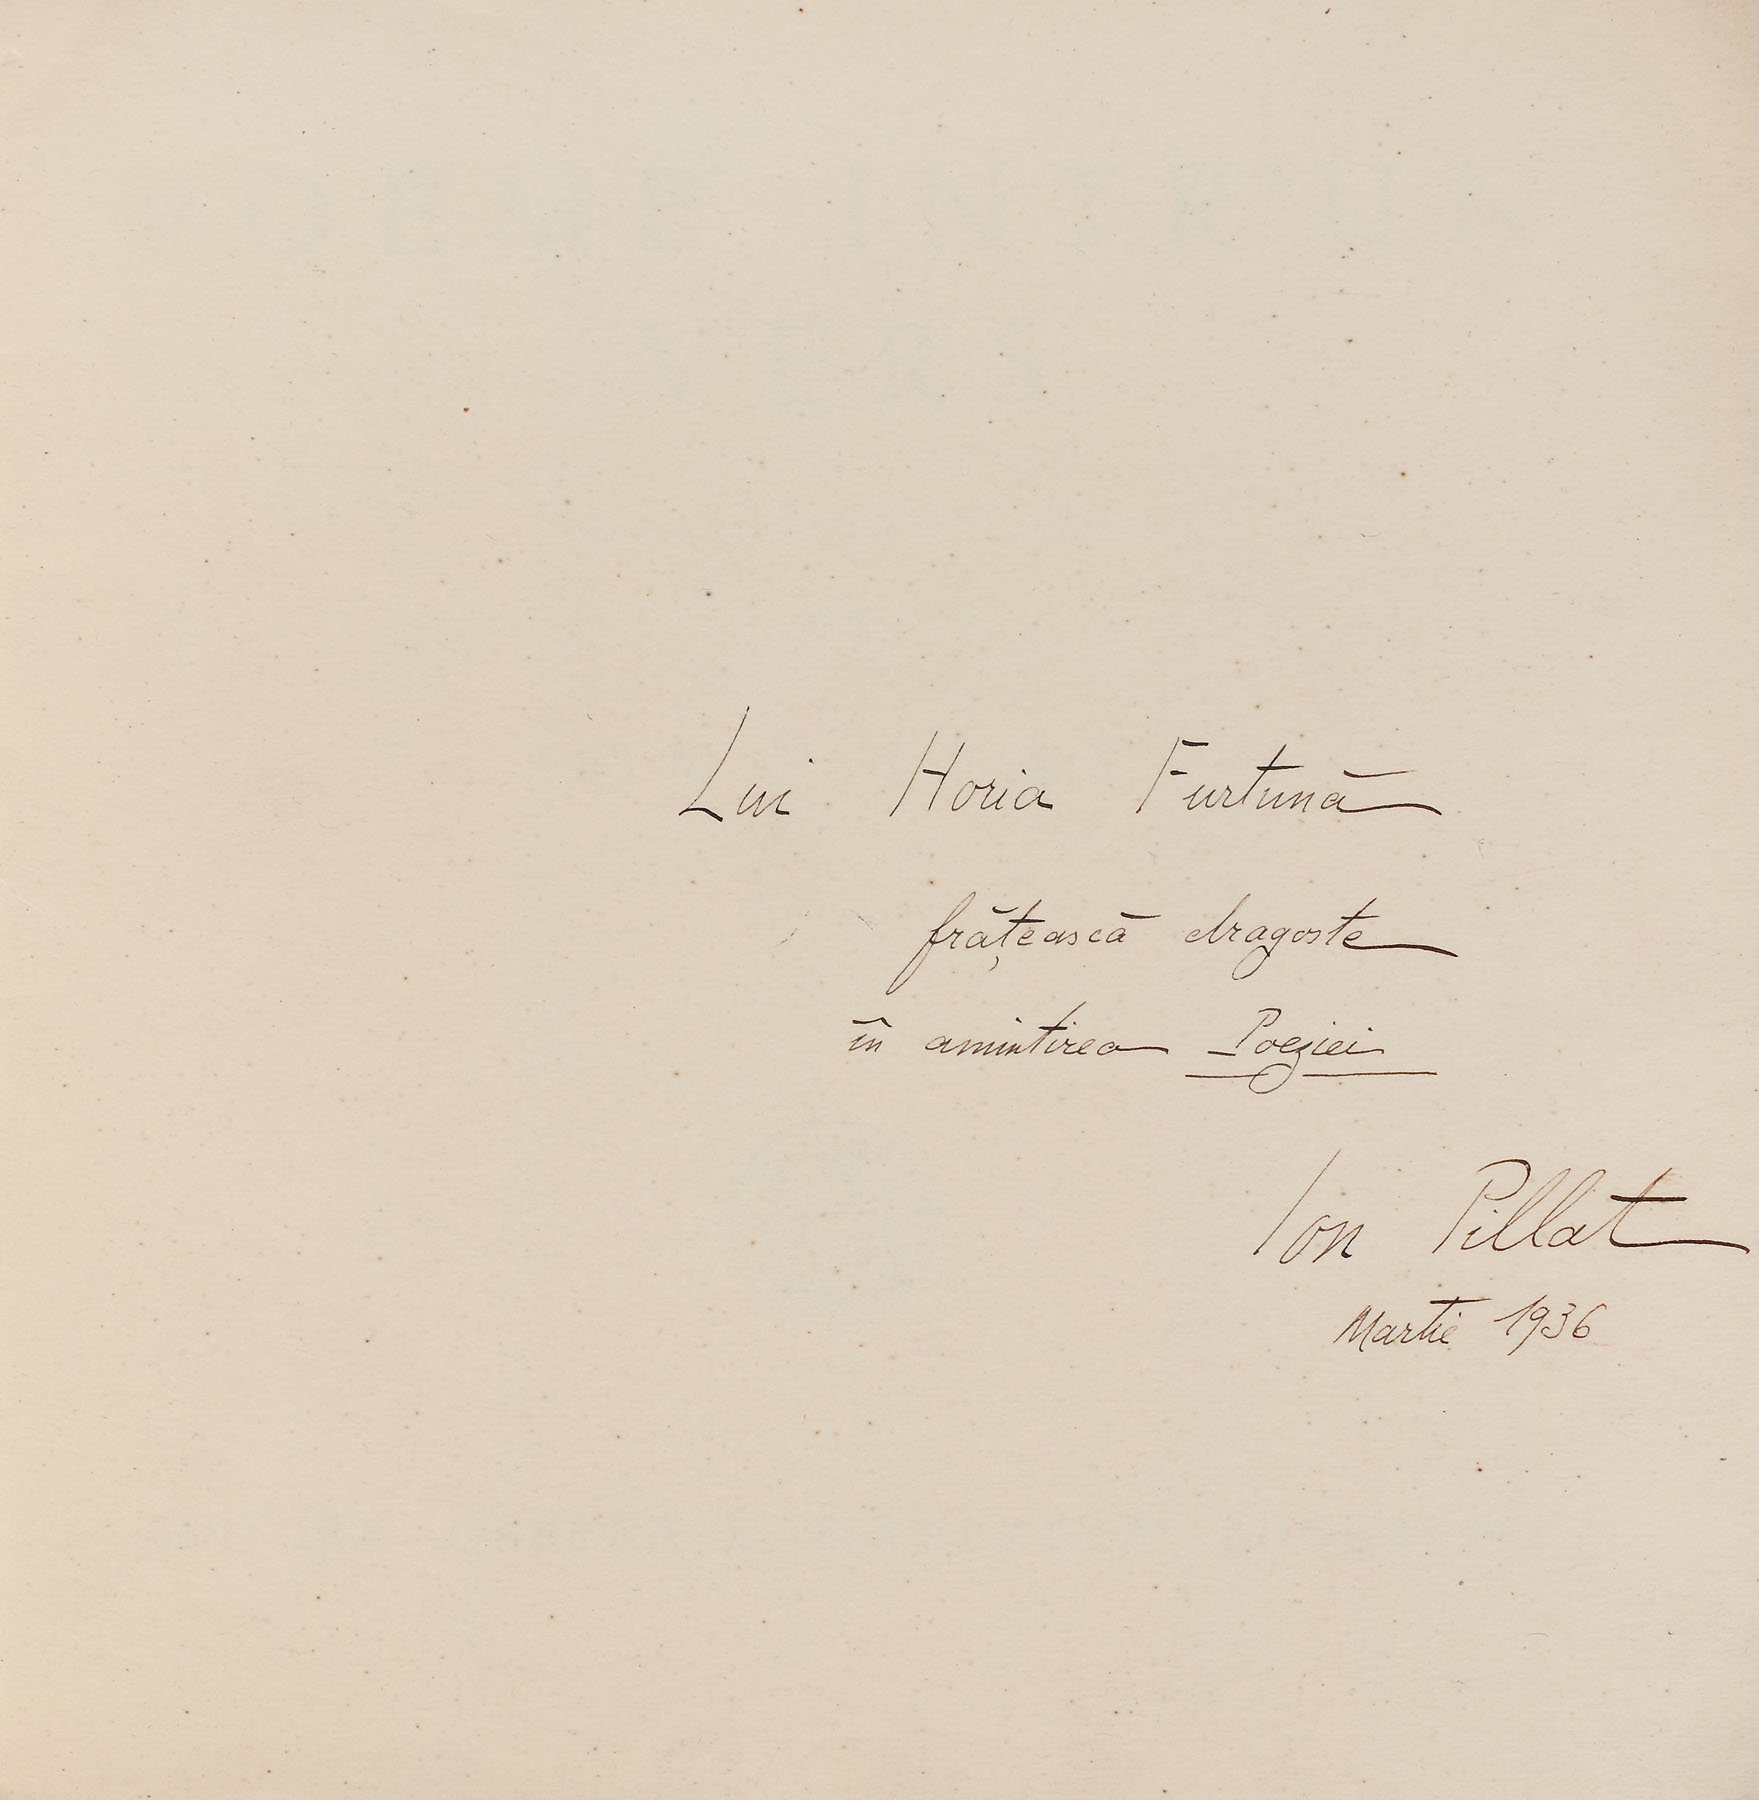 Lui Horia Furtună
frățească dragoste
în amintirea Poeziei
Ion Pillat
Martie 1936